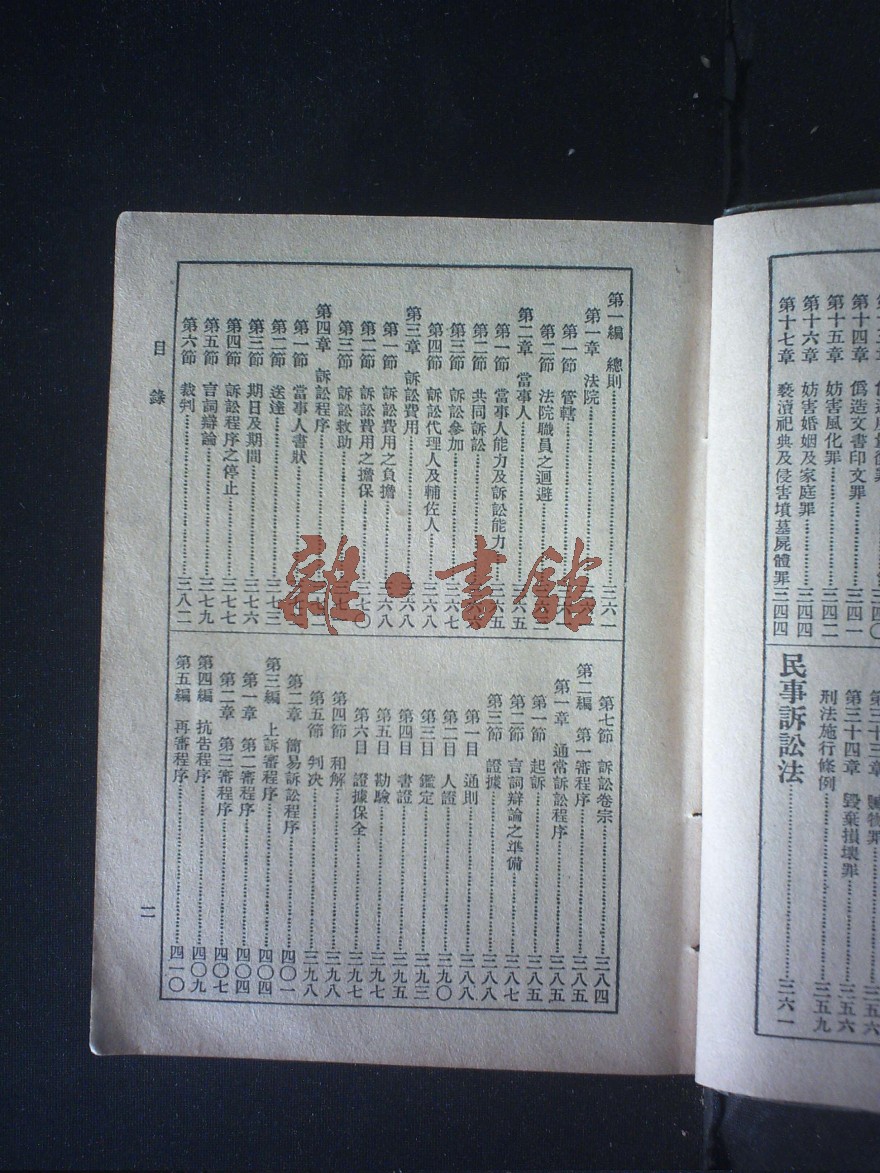 第十四章 僞造文書印文罪……三四一
第十五章 妨害風化罪……三四二
第十六章 妨害婚姻及家庭罪……三四四
第十七章 褻瀆祀典及侵害墳墓屍體罪 三四四
第三十三章 贓物罪……三五六
第三十四章 毀棄損壞罪……三五六
刑法施行條例……三五九
民事訴訟法……三六一
第一編 總則……三六一
第一章 法院……
第一節 管轄……
第二節 法院職員之迴避……
第二章 當事人……三六五
第一節 當事人能力及訴訟能力……
第二節 共同訴訟……
第三節 訴訟參加……三六七
第四節 訴訟代理人及輔佐人……三六八
第三章 訴訟費用……三六八
第一節 訴訟費用之負擔……三六八
第二節 訴訟費用之擔保……三七〇
第三節 訴訟救助……
第四章 訴訟程序……
第一節 當事人書狀……
第二節 送達……三七三
第三節 期日及期間……三七六
第四節 訴訟程序之停止……三七七
第五節 言詞辯論……三七九
第六節 裁判……三八二
第七節 訴訟卷宗……三八四
第二編 第一審程序……三八五
第一章 通常訴訟程序……三八五
第一節 起訴……三八五
第二節 言詞辯論之準備……三八七
第三節 證據……三八八
第一目 通則……三八八
第二目 人證……三九〇
第三目 鑑定……三九三
第四目 書證……三九五
第五目 勘驗……三九七
第六目 證據保全……三九七
第四節 和解……三九八
第五節 判決……三九八
第二章 簡易訴訟程序……四〇一
第三編 上訴審程序……四〇四
第一章 第二審程序……四〇四
第二章 第三審程序……四〇七
第四編 抗告程序……四〇九
第五編 再審程序……四一〇
目錄
二
雜·書館